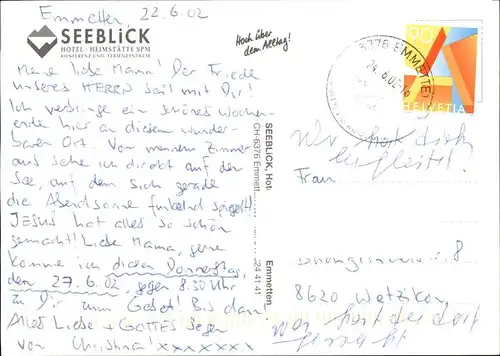 Emmetten, 22.6.02
SEEBLICK
HOTEL · HEIMSTÄTTE SPM
KONFERENZ UND FERIENZENTRUM
Hoch über
dem Alltag!
Meine liebe Mama! Der Friede
unseres HERRN sei mit Dir!
Ich verbringe ein schönes Wochen-
ende hier an diesem wunder-
baren Ort. Von meinem Zimmer
aus sehe ich direkt auf den
See, auf dem sich gerade
die Abendsonne funkelnd spiegelt!
JESUS hat alles so schön
gemacht! Liebe Mama, gerne
komme ich diesen Donnerstag,
den 27.6.02, gegen 8.30 Uhr
zu Dir zum Gebet! Bis dann!
Alles Liebe + GOTTES Segen
von Christina! xxxxxxx
SEEBLICK, Hot
CH-6376 Emmett
Emmetten
624 41 41
6376 EMMETTEN
24.6.02
90
HELVETIA
Wer hat dich
begleitet?
Frau
8
8620 Wetzikon
Wer hat dich dort